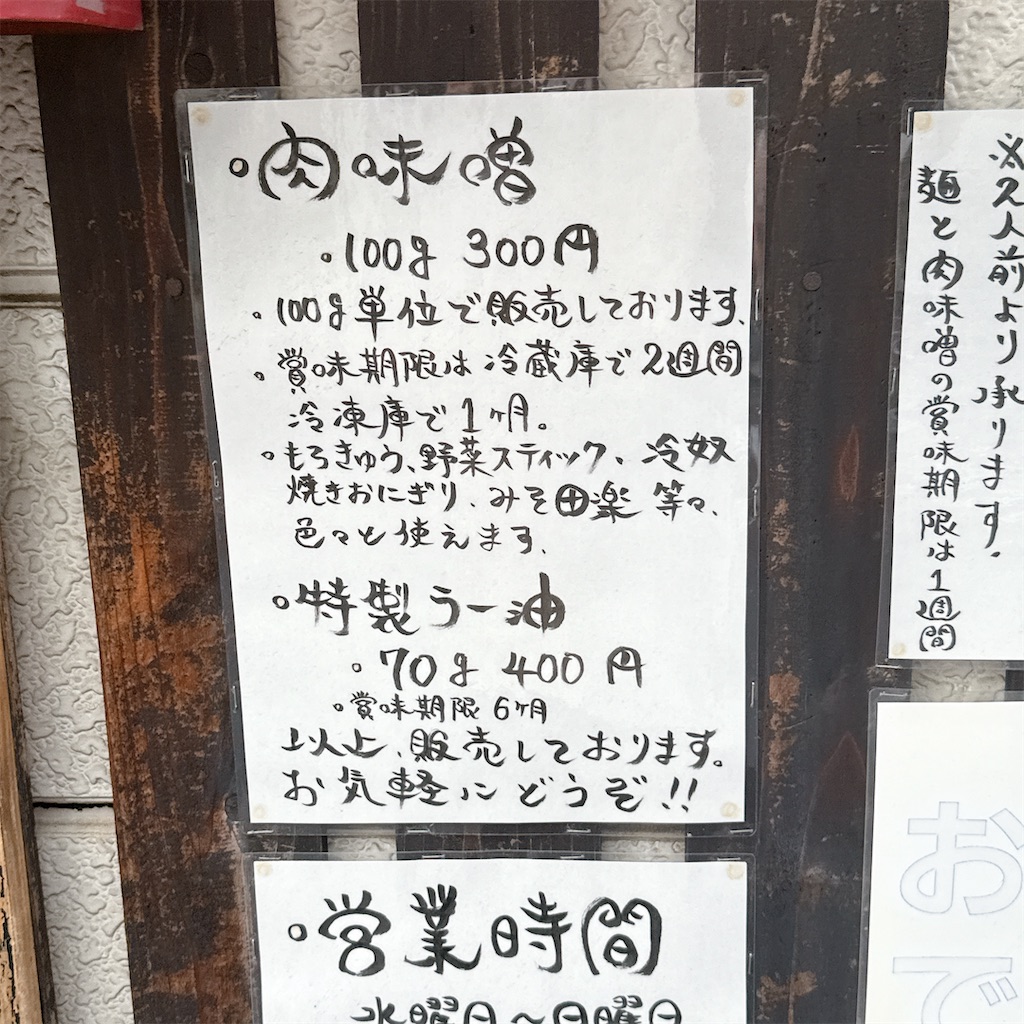 ・肉味噌
・100g 300円
・100g単位で販売しております。
・賞味期限は冷蔵庫で2週間
冷凍庫で1ヶ月。
・もろきゅう、野菜スティック、冷奴
焼きおにぎり、みそ田楽 等々、
色々と使えます。
・特製ラー油
・70g 400円
・賞味期限 6ヶ月
以上、販売しております。
お気軽にどうぞ!!
・営業時間
水曜日〜日曜日
※2人前より承ります。
麺と肉味噌の賞味期限は1週間
お
で